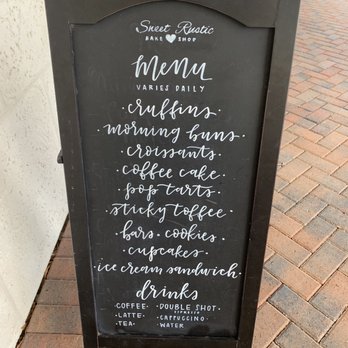 Sweet Rustic
BAKE SHOP
menu
VARIES DAILY
·cruffins·
·morning buns·
·croissants·
·coffee cake·
·pop tarts·
·sticky toffee·
·bars·cookies·
·cupcakes·
·ice cream sandwich·
drinks
·COFFEE ·DOUBLE SHOT
ESPRESSO
·LATTE· ·CAPPUCCINO
·TEA· ·WATER